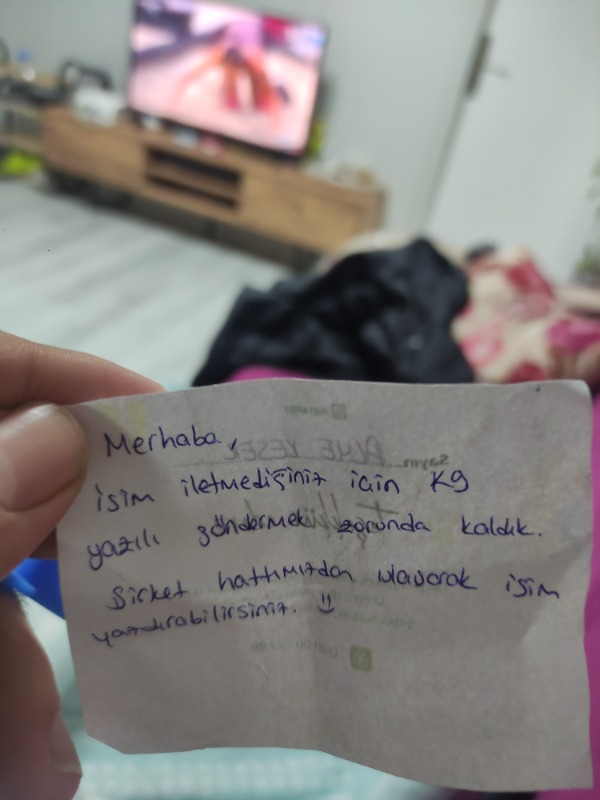 Merhaba,
isim iletmediğiniz için K9
yazılı göndermek zorunda kaldık.
Şirket hattımızdan ulaşarak isim
yazdırabilirsiniz. :)
Sayın